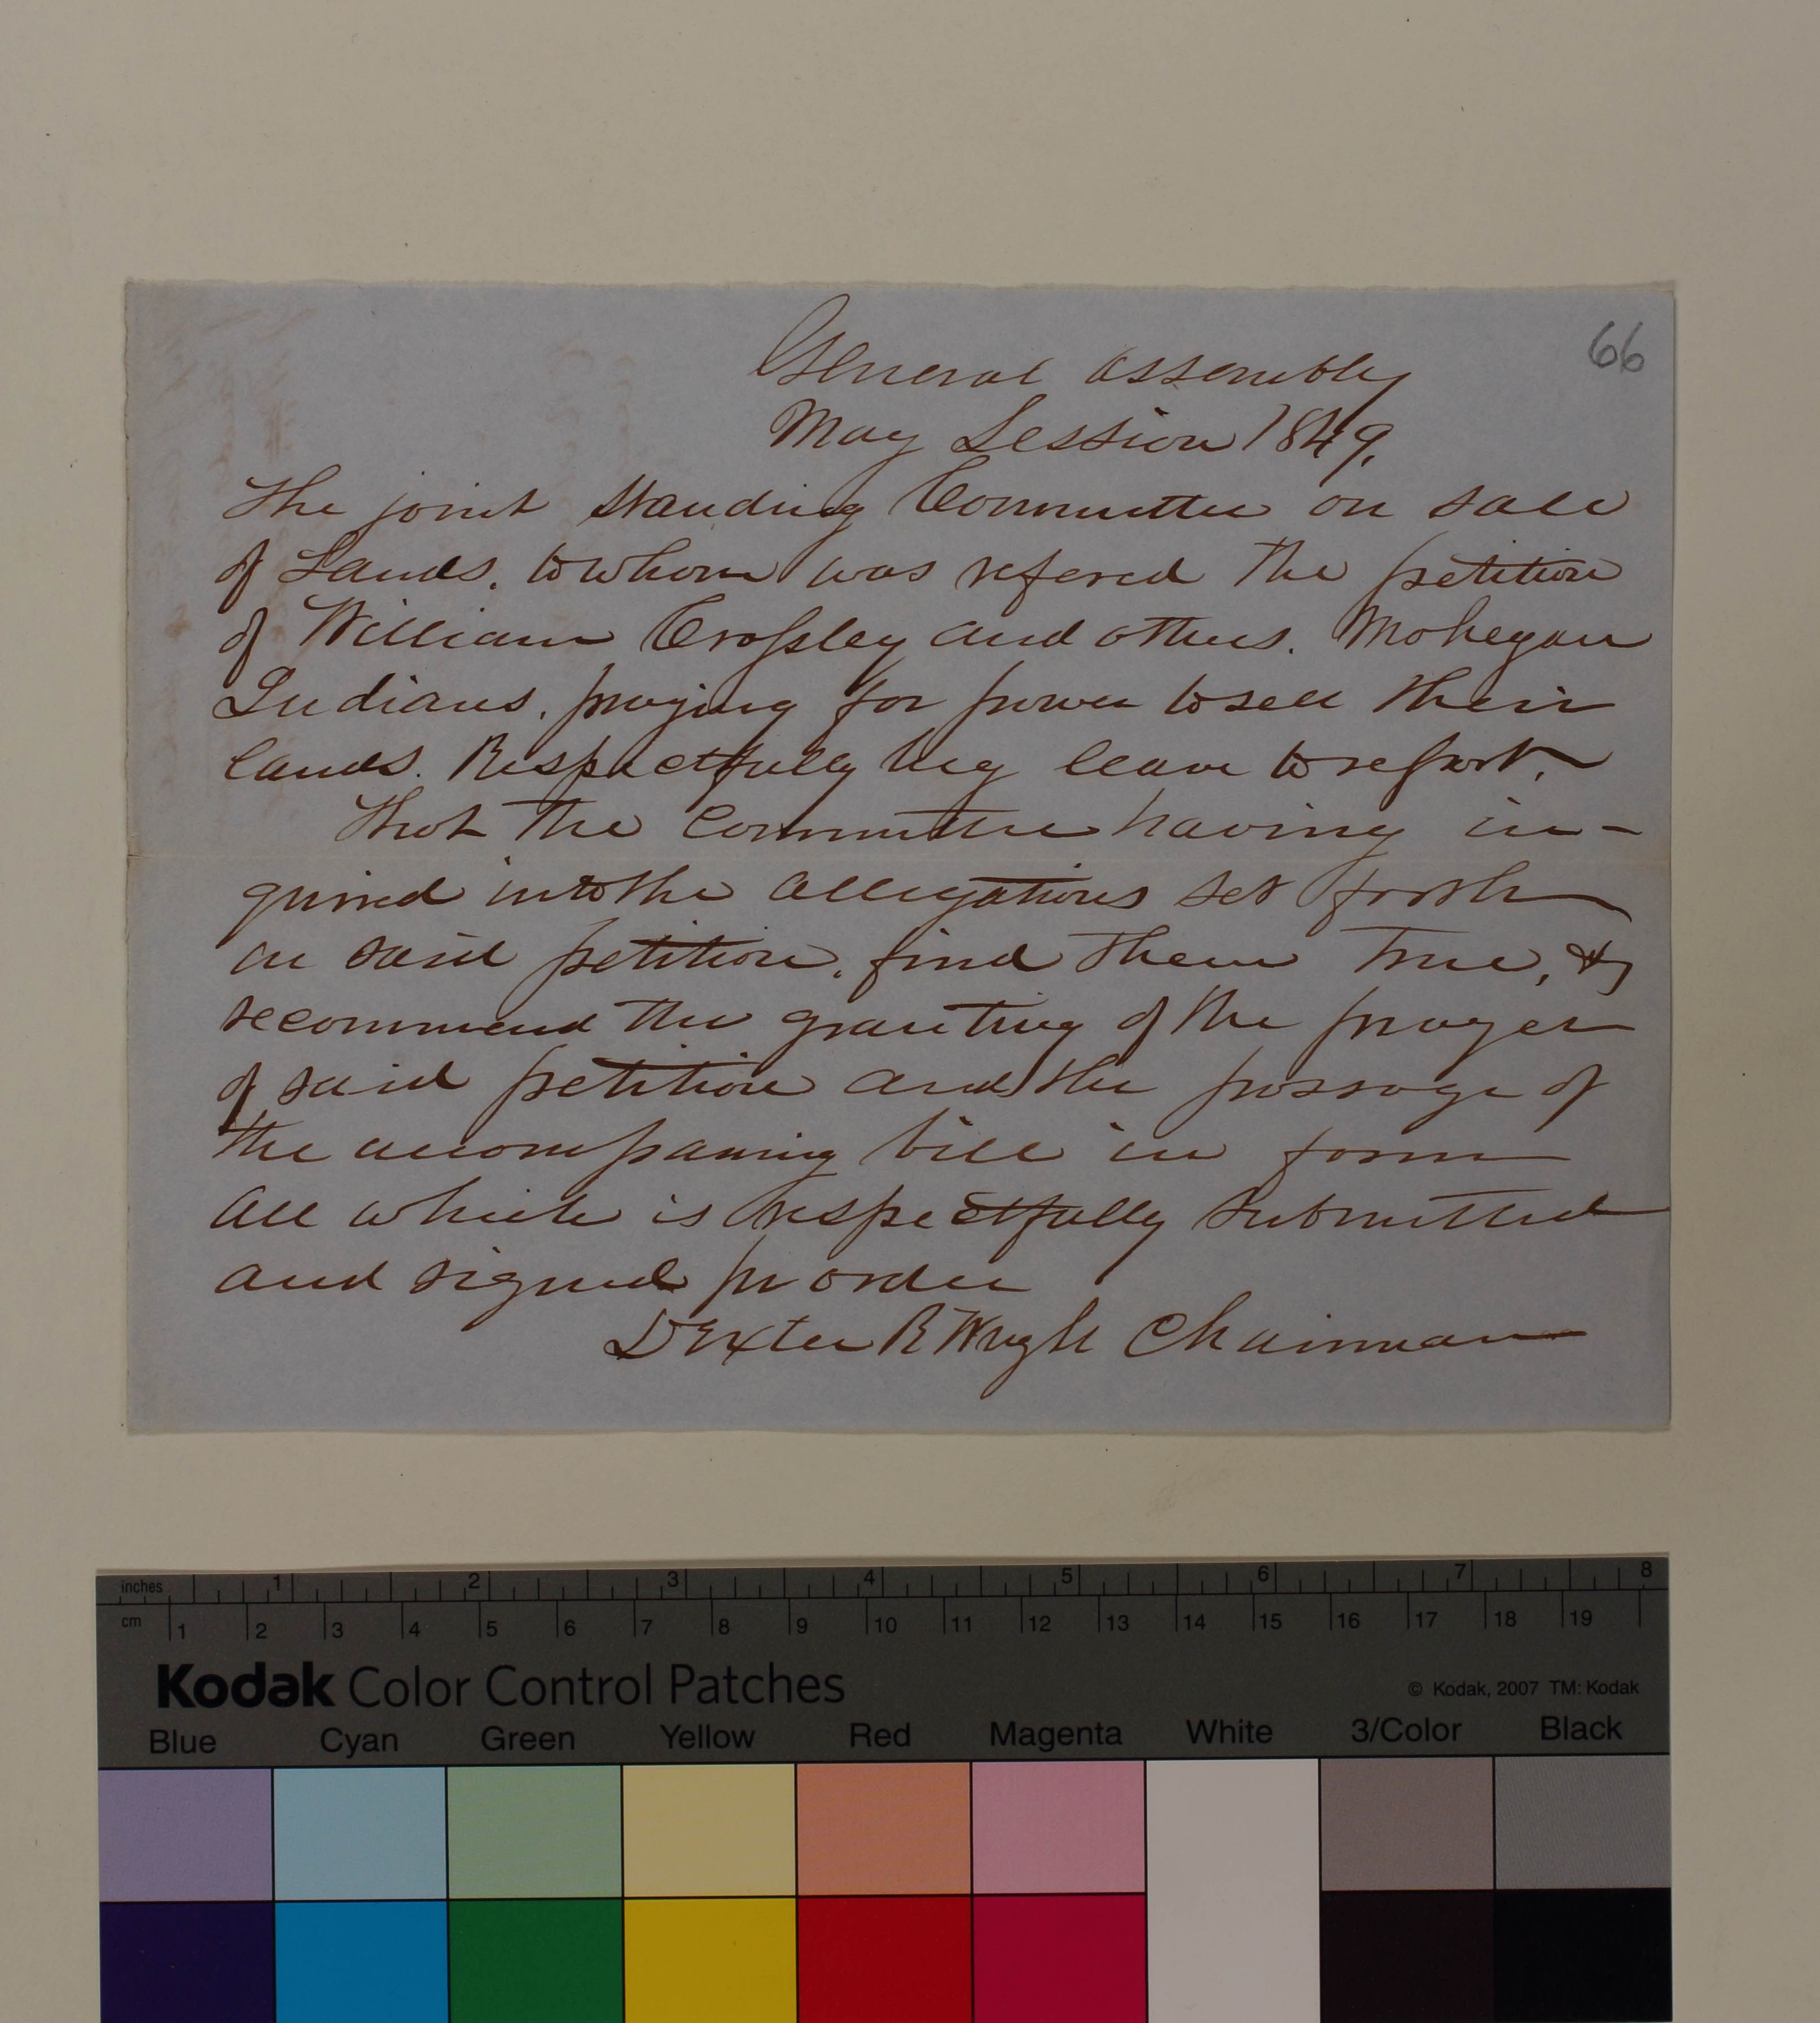 66
General Assembly
May Session 1849.
The joint Standing Committee on sale
of Lands. to whom was refered the petition
of William Crossley and others. Mohegan
Indians, praying for power to sell their
lands. Respectfully beg leave to report.
That the Committee having in-
quired into the allegations set forth
in said petition, find them true, &
recommend the granting of the prayer
of said petition and the passage of
the accompaning bill in form
All which is respectfully submitted
and signed pr order
Dexter R Wright Chairman
inches 1 2 3 4 5 6 7 8
cm 1 2 3 4 5 6 7 8 9 10 11 12 13 14 15 16 17 18 19
Kodak Color Control Patches
© Kodak, 2007 TM: Kodak
Blue Cyan Green Yellow Red Magenta White 3/Color Black